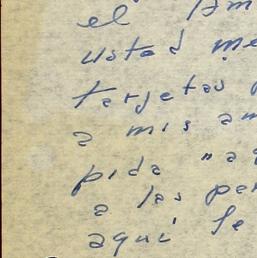 el
usted me
tarjetas
a mis am
pida "a
a las per
aquí le